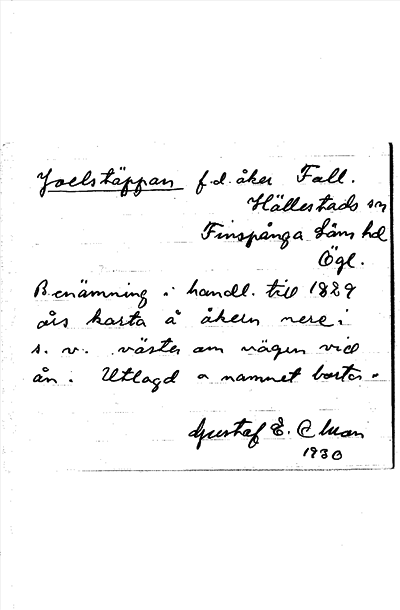 Joelstäppan f.d. åker Fall.
Hällestads sn
Finspånga läns hd
Ögl.
Benämning i handl. till 1829
års karta å åkern nere i
s. v. väster om vägen vid
ån. Utlagd o namnet borta.
Gustaf E. Olman
1930